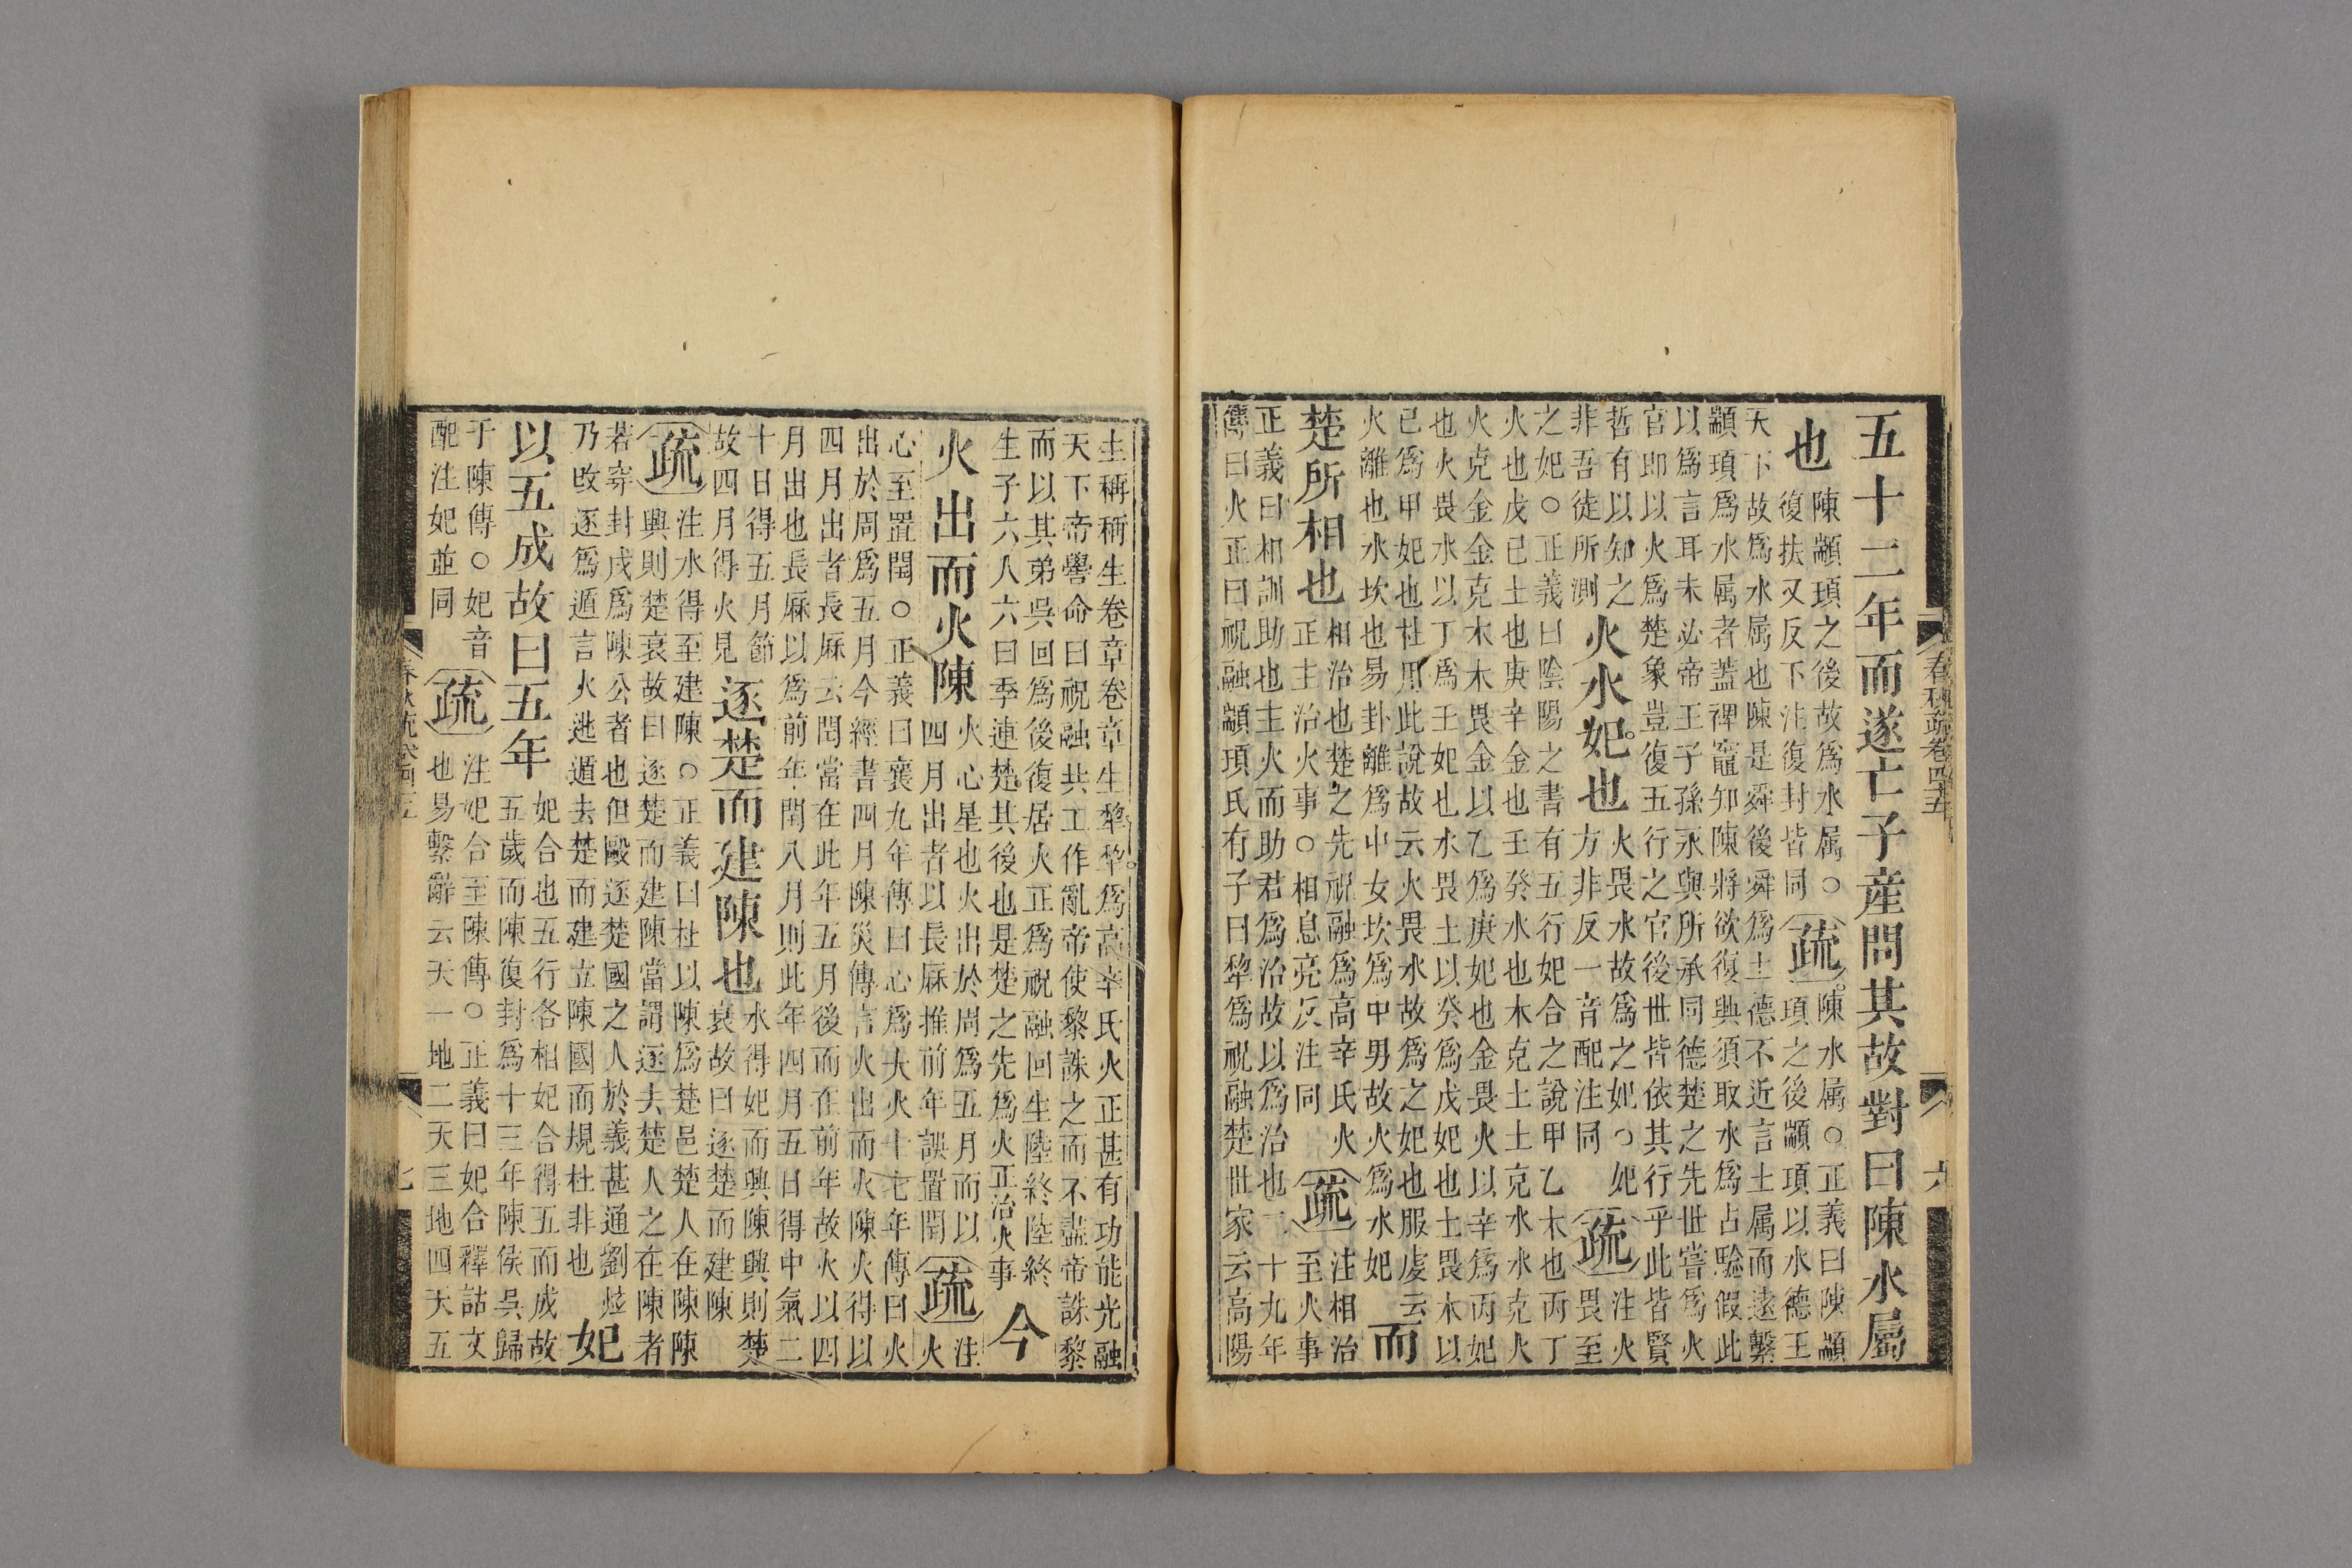 春秋疏卷四十五 六
五十二年而遂亡子産問其故對曰陳水屬
也
陳顓頊之後故為水属○
復扶又反下注復封皆同
疏
陳水属○正義曰陳顓
頊之後顓頊以水德王
天下故為水属也陳是舜後舜為土德不近言土属而遠繫
顓頊為水属者蓋裨竈知陳將欲復興須取水為占驗假此
以為言耳未必帝王子孫永與所承同德楚之先世嘗為火
官即以火為楚象豈復五行之官後世皆依其行乎此皆賢
哲有以知之
非吾徒所測
火水妃也
火畏水故為之妃○妃
方非反一音配注同
疏
注火
畏至
之妃○正義曰陰陽之書有五行妃合之說甲乙木也丙丁
火也戊己土也庚辛金也壬癸水也木克土土克水水克火
火克金金克木木畏金以乙為庚妃也金畏火以辛為丙妃
也火畏水以丁為壬妃也水畏土以癸為戊妃也土畏木以
己為甲妃也杜用此說故云火畏水故為之妃也服虔云
火離也水坎也易卦離為中女坎為中男故火為水妃
而
楚所相也
相治也楚之先祝融為高辛氏火
正主治火事○相息亮反注同
疏
注相治
至火事
正義曰相訓助也主火而助君為治故以為治也二十九年
傳曰火正曰祝融顓頊氏有子曰犂為祝融楚世家云高陽
生稱稱生卷章卷章生犂犂為高辛氏火正甚有功能光融
天下帝嚳命曰祝融共工作亂帝使黎誅之而不盡帝誅黎
而以其弟吳回為後復居火正為祝融回生陸終陸終
生子六人六曰季連楚其後也是楚之先為火正治火事
今
火出而火陳
火心星也火出於周為五月而以
四月出者以長厤推前年誤置閏
疏
注
火
心至置閏○正義曰襄九年傳曰心為大火十七年傳曰火
出於周為五月今經書四月陳災傳言火出而火陳火得以
四月出者長厤云閏當在此年五月後而在前年故火以四
月出也長厤以為前年閏八月則此年四月五日得中氣二
十日得五月節
故四月得火見
逐楚而建陳也
水得妃而興陳興則楚
衰故曰逐楚而建陳
疏
注水得至建陳○正義曰杜以陳為楚邑楚人在陳陳
興則楚衰故曰逐楚而建陳當謂逐去楚人之在陳者
若穿封戌為陳公者也但毆逐楚國之人於義甚通劉炫
乃改逐為遁言火逃遁去楚而建立陳國而規杜非也
妃
以五成故曰五年
妃合也五行各相妃合得五而成故
五歲而陳復封為十三年陳侯吳歸
于陳傳○妃音
配注妃並同
疏
注妃合至陳傳○正義曰妃合釋詁文
也易繫辭云天一地二天三地四天五